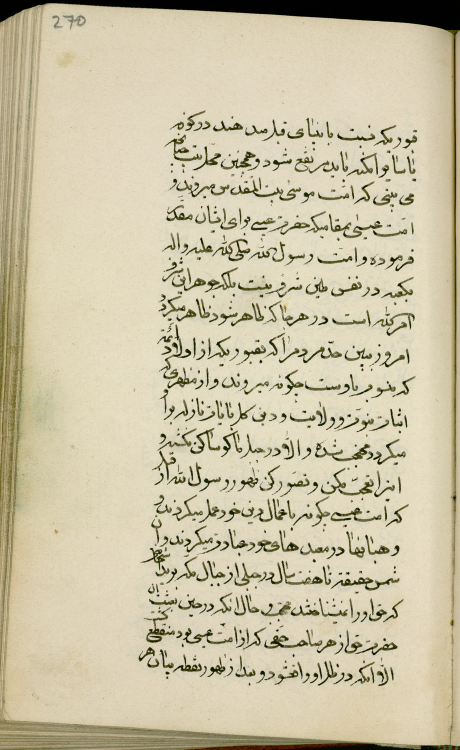 270
قبوریکه نسبت بانبیای قبل مدهند در کوفه
یا سایر امکنه باید مرتفع شود و همچنین محل بیت
می بینی که امت موسی بیت المقدس میروند و
امت عیسی بمقامیکه حضرت عیسی برای ایشان مقدر
فرموده و امت رسول الله صلی الله علیه واله
بکعبه در نفس طین شرف نیست بلکه جوهر این شرف
امر الله است در هر جا که ظاهر شود ظاهر میگردد
امروز ببین چقدر مردم را که بقبور یکه از اولاد ائمه
که منسوب باوست چگونه میروند و از مظهری که
اثبات نبوت و ولایت و دین کل بایات نازله از او
میگردد محتجب شده و الا در جبل ماکو ساکن نگشته و
این را تعجب مکن و تصور کن ظهور رسول الله از قبل
که امت عیسی چگونه باعمال دین خود عمل میکردند و
رهبانها در معبد های خود عبادت میکردند و آن
شمس حقیقت تا هفت سال در جبلی از جبال مکه بودند
که حق او را نشناختند محتجب و حال آنکه در حین بعثت ان
حضرت حق از هر صاحب حقی که از امت عیسی بود منقطع گشت
الا آنکه در ظل او وارد شود و بعد از ظهور نقطه بیان هر